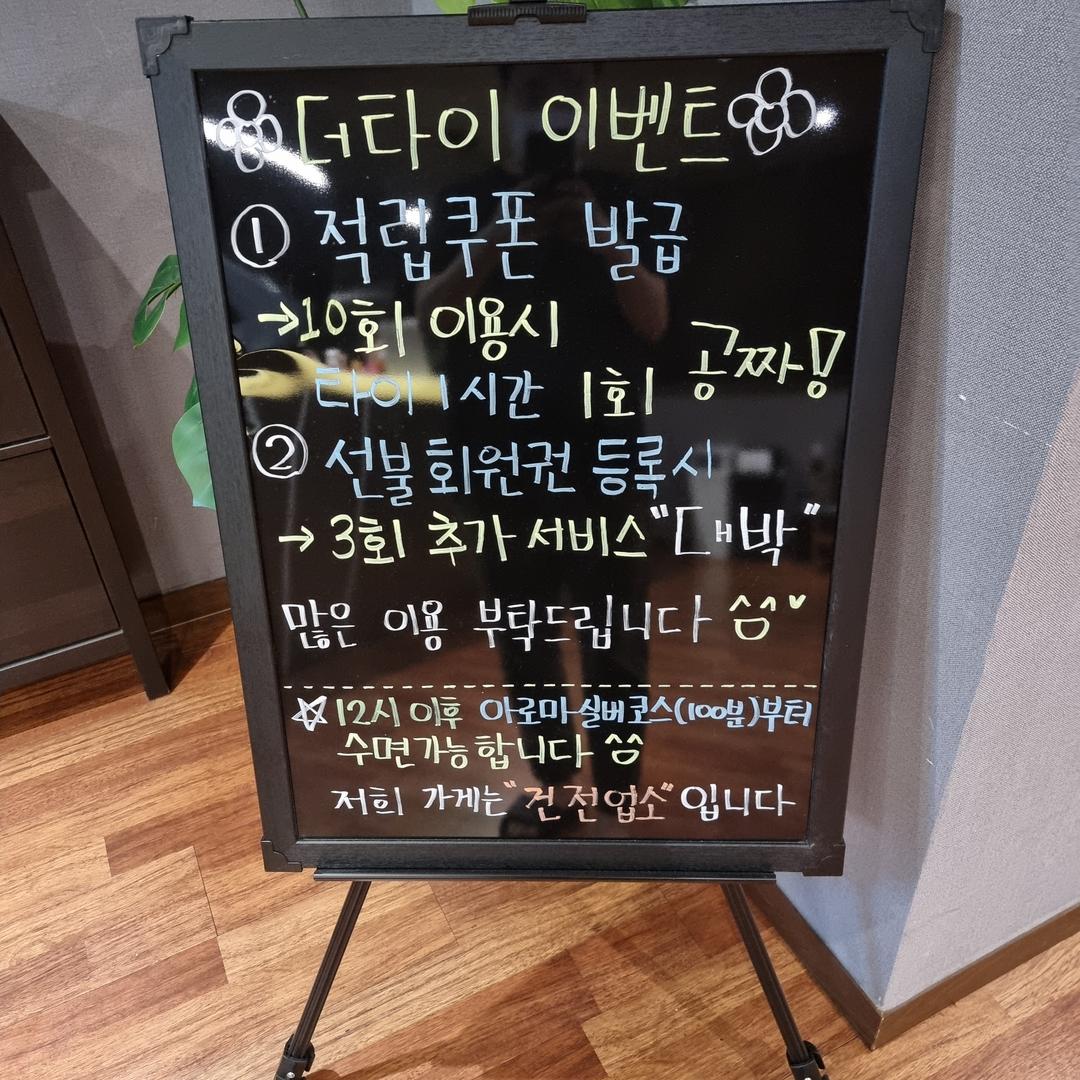 더타이 이벤트
① 적립쿠폰 발급
→10회 이용시
타이 1시간 1회 공짜!
② 선불회원권 등록시
→ 3회 추가 서비스 "대박"
많은 이용 부탁드립니다 ^^
☆12시 이후 아로마실버코스(100분)부터
수면가능합니다 ^^
저희 가게는 "건전업소" 입니다